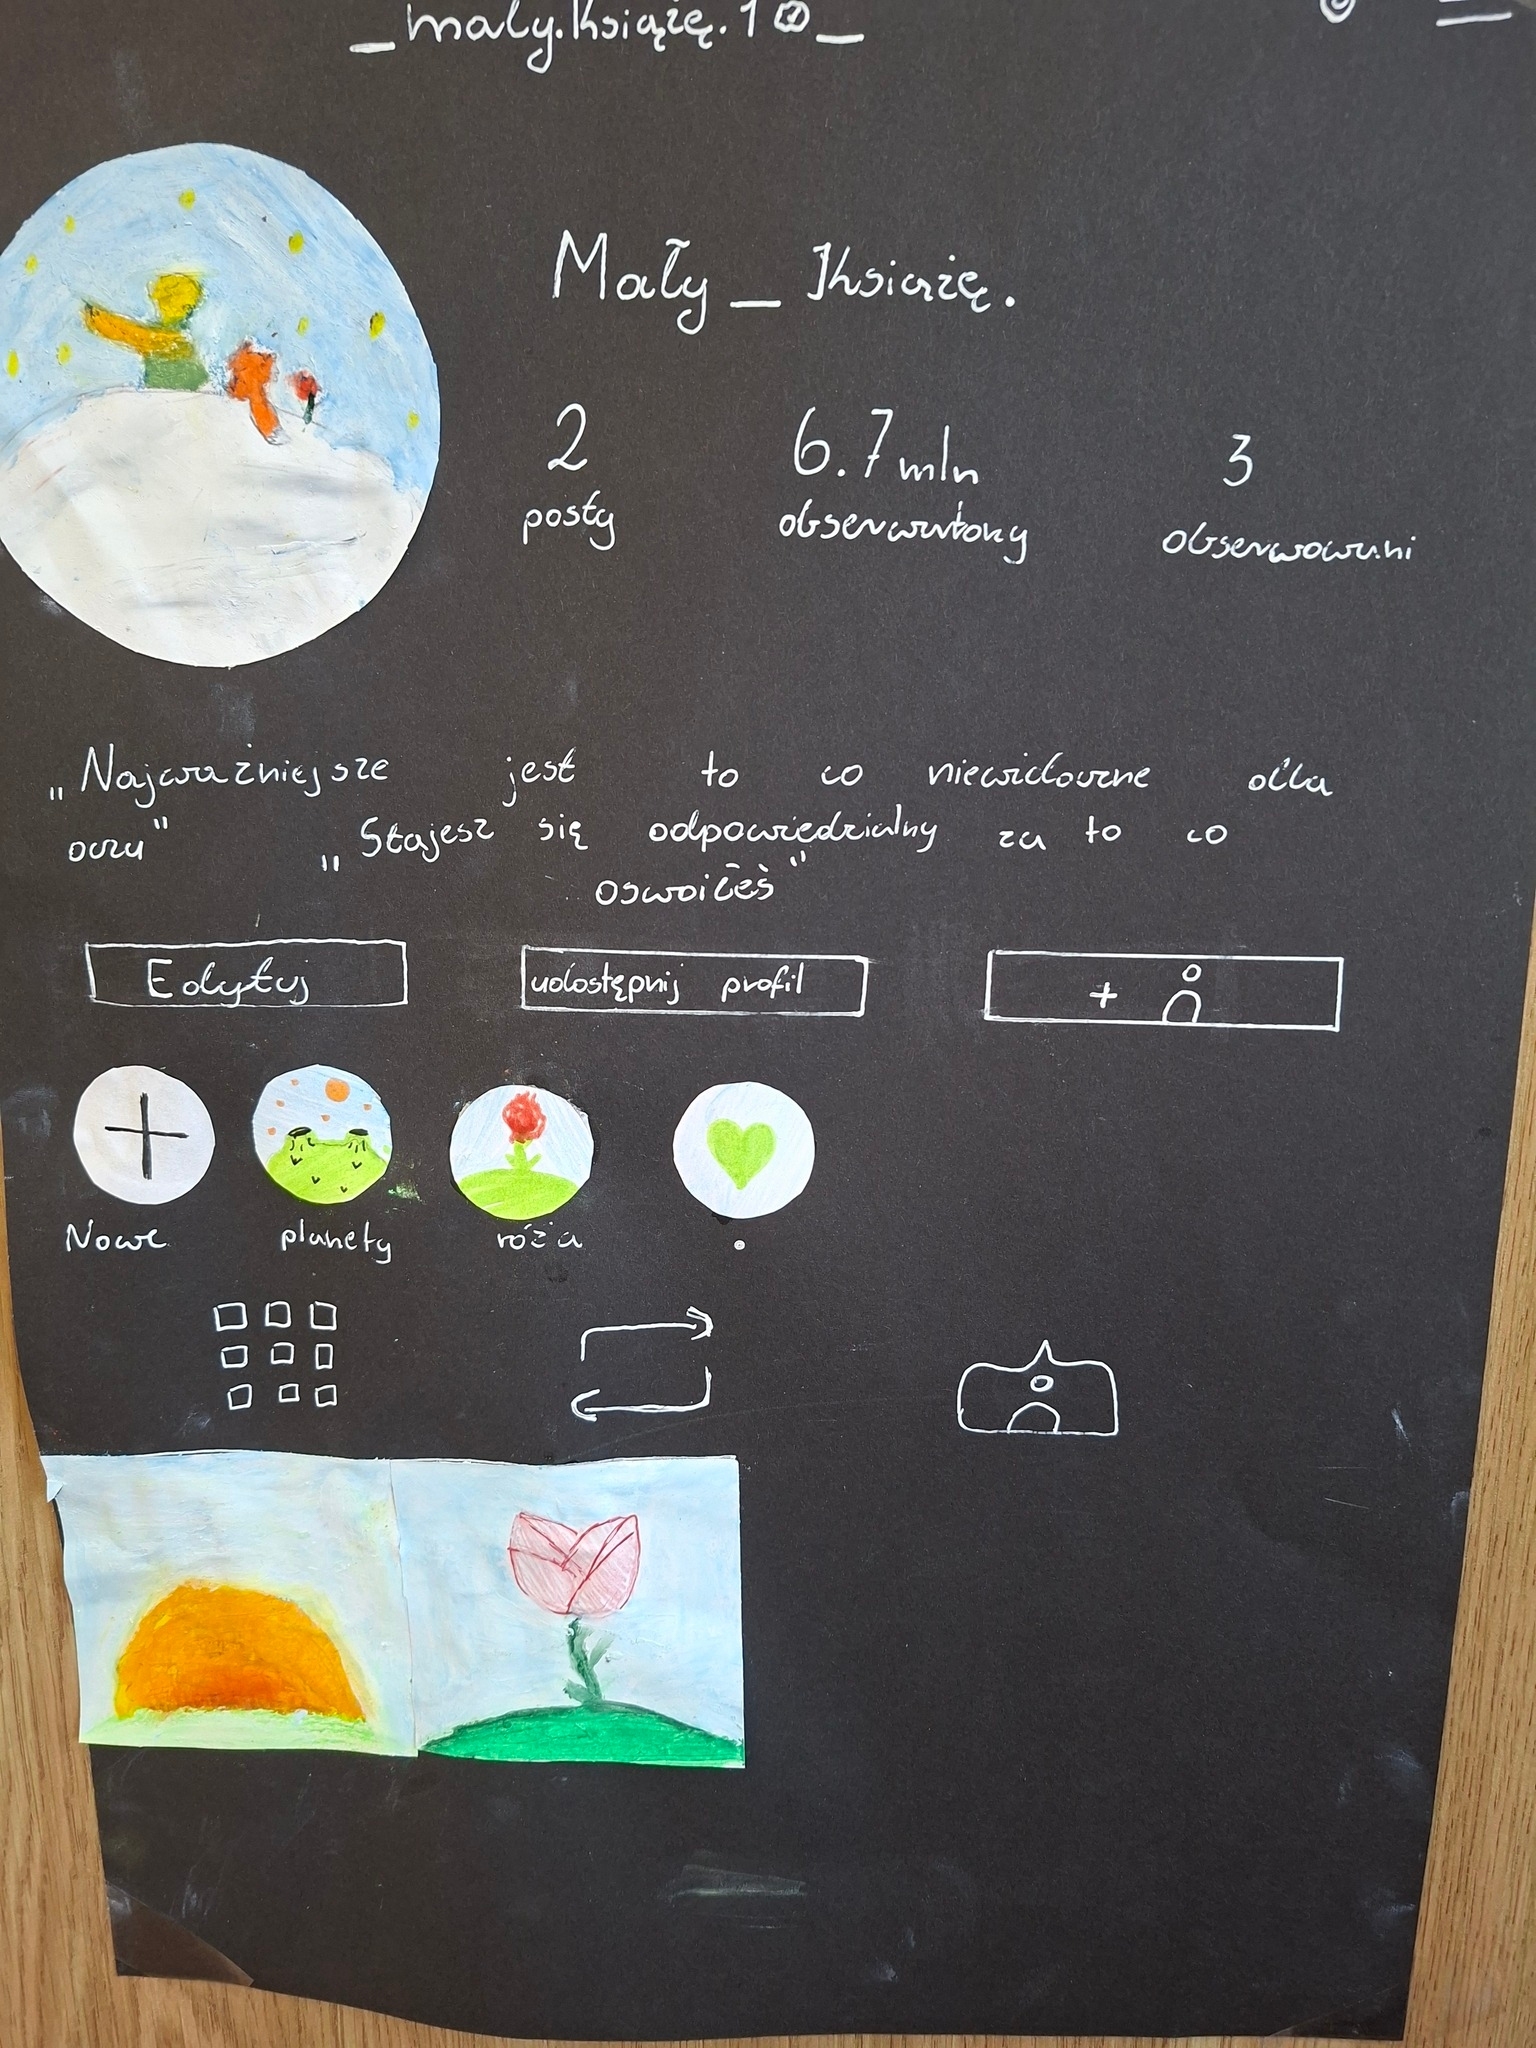 _maly.książę.10_
Mały_Książę.
2 6.7mln 3
posty obserwatorzy obserwowani
„Najważniejsze jest to co niewidoczne dla
oczu" „Stajesz się odpowiedzialny za to co
oswoiłeś"
Edytuj udostępnij profil +
Nowe planety róża